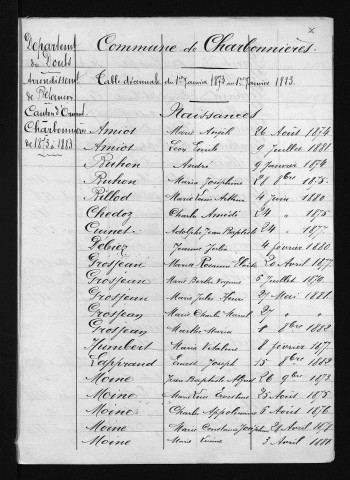 Département
du Doubs
Arrondissement
de Besançon
Canton d'Ornans
Charbonnières
de 1873 à 1883
Commune de Charbonnières.
Table décennale du 1er Janvier 1873 au 1er Janvier 1883.
Naissances
Amiot Marie Angèle 26 Août 1874
Amiot Léon Emile 9 Juillet 1881
Buhon André 9 Janvier 1874
Buhon Marie Joséphine 28 8bre 1875
Billod Marie 4 Juin 1880
Chedoz Charles Amédée 24 " 1875
Cuinet Adolphe Jean Baptiste 24 " 1877
Debiez Jeanne Julie 4 février 1880
Grosjean Maria 20 Avril 1877
Grosjean Marie Berthe 5 Juillet 1879
Grosjean Marie Jules 27 Mai 1881
Grosjean Marie Charles Marcel 27 "
Grosjean Marthe Maria 8 8bre 1882
Humbert Maria 8 février 1877
Lapprand Ernest Joseph 15 8bre 1882
Moine Jean Baptiste Alfred 26 9bre 1873
Moine Marie 25 Août 1875
Moine Charles Appolinaire 5 Août 1876
Moine Marie Constance Joséphine 24 Avril 1878
Moine Marie 3 Avril 1881